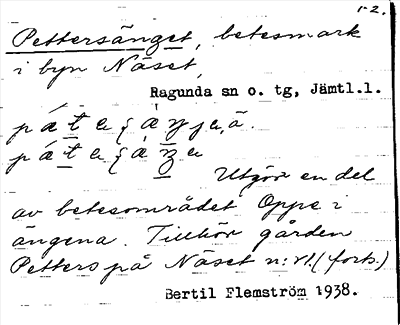 1-2.
Pettersänget, betesmark
i byn Näset,
Ragunda sn o. tg, Jämtl.l.
Utgör en del
av betesområdet Oppe i
ängena. Tillhör gården
Petters på Näset n:r1.(forts.)
Bertil Flemström 1938.